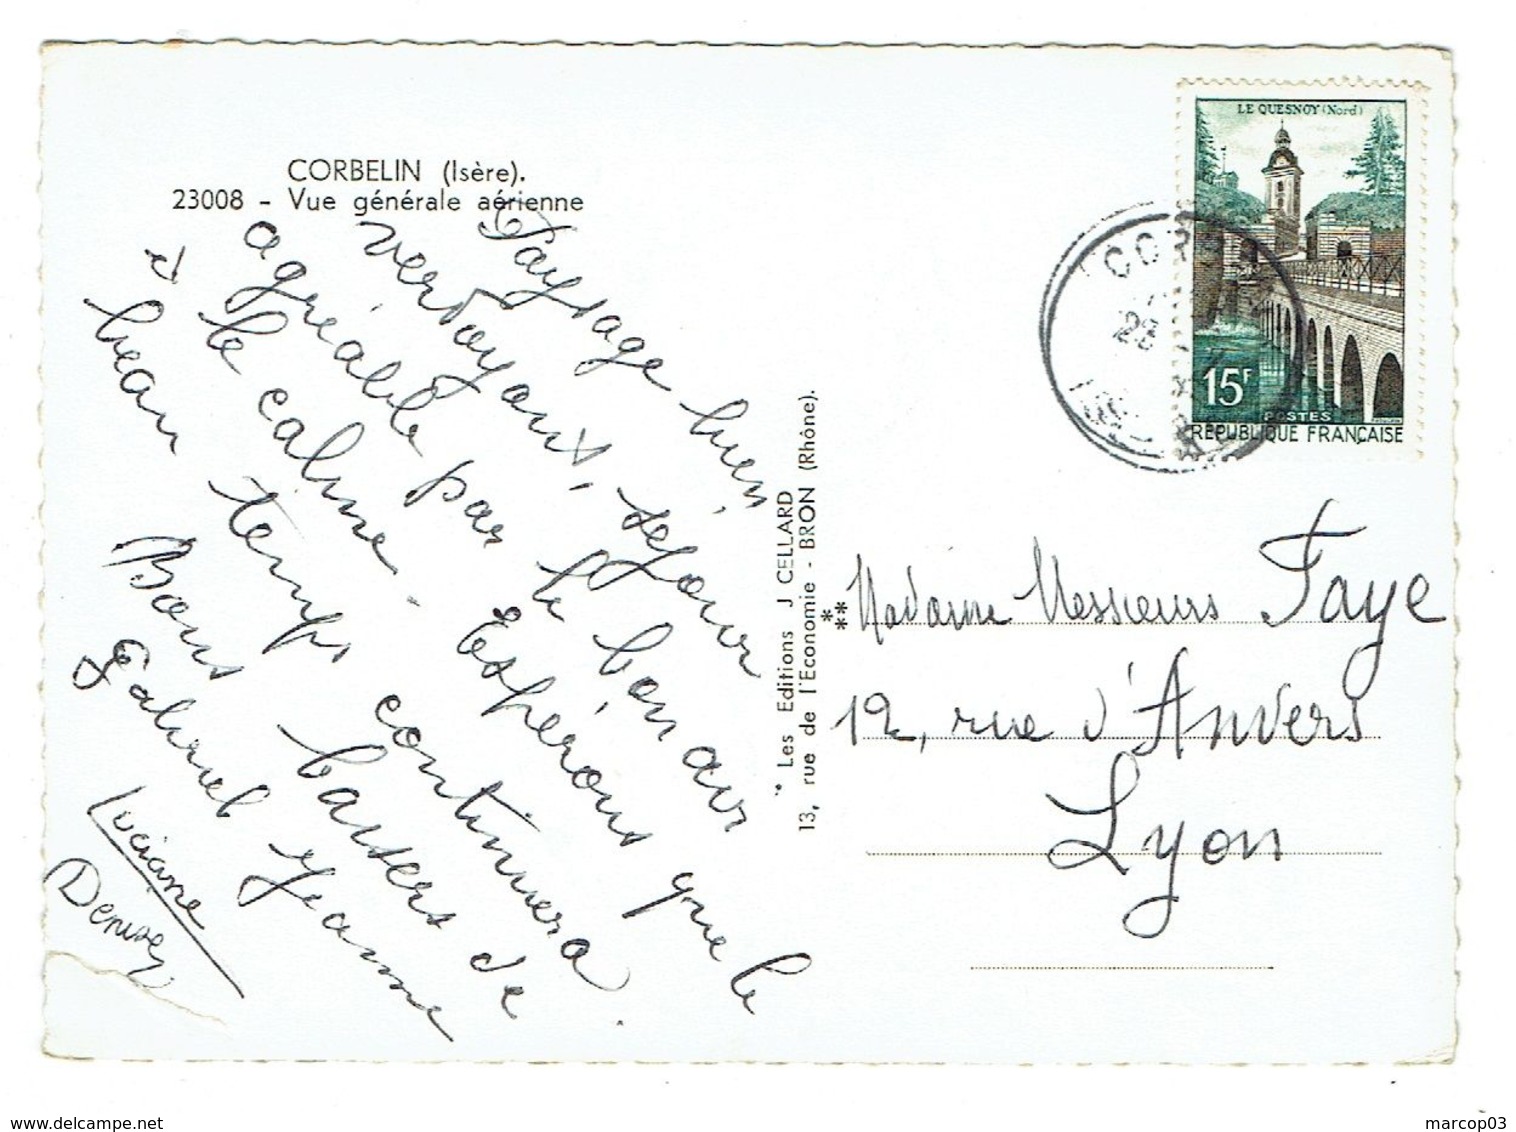 CORBELIN (Isère).
23008 - Vue générale aérienne
Paysage bien
verdoyant, séjour
agréable par le bon air
et le calme. Espérons que le
beau temps continuera.
Bons baisers de
Gabriel Jeanne
Lucienne
Denise
* Les Editions J CELLARD
13, rue de l'Economie - BRON (Rhône).
LE QUESNOY (Nord)
15F
POSTES
RÉPUBLIQUE FRANÇAISE
COR
** Madame Messieurs Faye
12, rue d'Anvers
Lyon
www.delcampe.net
marcop03